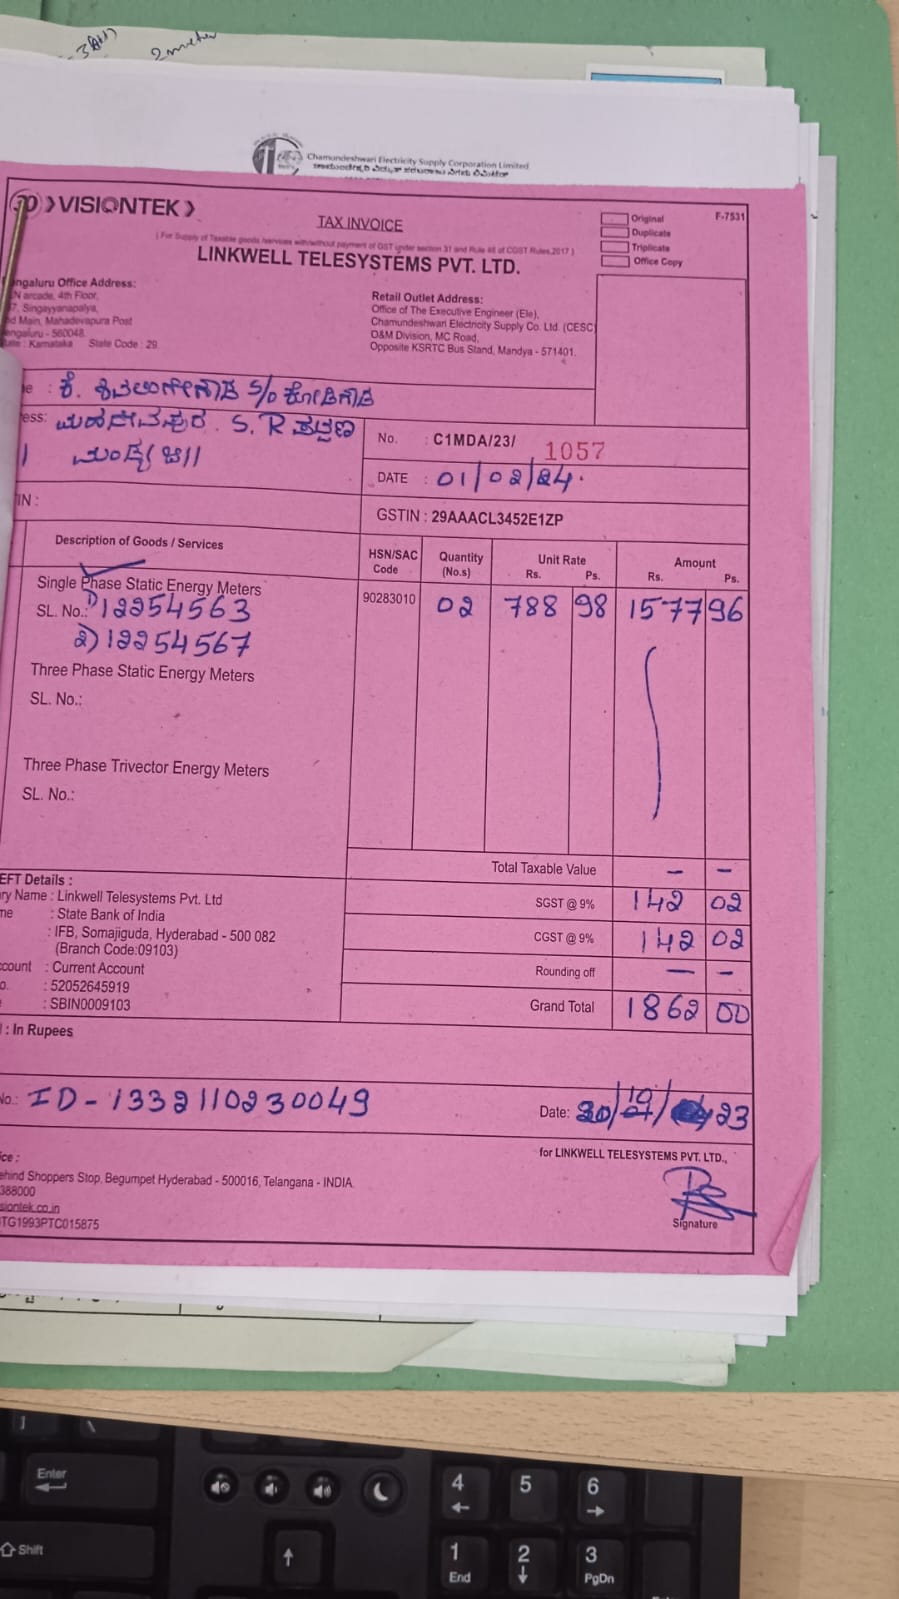 2 meter
Chamundeshwari Electricity Supply Corporation Limited
VISIONTEK
TAX INVOICE
Original
F-7531
Duplicate
Triplicate
Office Copy
[ For Supply of Taxable goods /services with/without payment of GST under section 31 and Rule 46 of CGST Rules,2017 ]
LINKWELL TELESYSTEMS PVT. LTD.
ngaluru Office Address:
N arcade, 4th Floor,
7, Singayyanapalya,
d Main, Mahadevapura Post
engaluru - 560048.
ate : Karnataka State Code : 29
Retail Outlet Address:
Office of The Executive Engineer (Ele),
Chamundeshwari Electricity Supply Co. Ltd. (CESC)
O&M Division, MC Road,
Opposite KSRTC Bus Stand, Mandya - 571401.
e : ಕೆ. ಶಿವಲಿಂಗೇಗೌಡ S/o ಕೋಡಿಗೌಡ
ess: ಮಹದೇವಪುರ. S.R ಪಟ್ಟಣ
ಮಂಡ್ಯ ಜಿ||
No. : C1MDA/23/ 1057
DATE : 01/02/24.
IN :
GSTIN : 29AAACL3452E1ZP
Description of Goods / Services
HSN/SAC Code
Quantity (No.s)
Unit Rate Rs. Ps.
Amount Rs. Ps.
Single Phase Static Energy Meters
SL. No.: 1) 12254563
90283010 02 788 98 1577 96
2) 12254567
Three Phase Static Energy Meters
SL. No.:
Three Phase Trivector Energy Meters
SL. No.:
Total Taxable Value — —
EFT Details :
ry Name : Linkwell Telesystems Pvt. Ltd
me : State Bank of India
: IFB, Somajiguda, Hyderabad - 500 082
(Branch Code:09103)
ccount : Current Account
o. : 52052645919
: SBIN0009103
SGST @ 9% 142 02
CGST @ 9% 142 02
Rounding off — —
Grand Total 1862 00
: In Rupees
No.: ID-1332110230049
Date: 30/10/23
ice :
for LINKWELL TELESYSTEMS PVT. LTD.,
ehind Shoppers Stop, Begumpet Hyderabad - 500016, Telangana - INDIA.
388000
siontek.co.in
TG1993PTC015875
Signature
Enter
Shift
4
5
6
1
End
2
3
PgDn